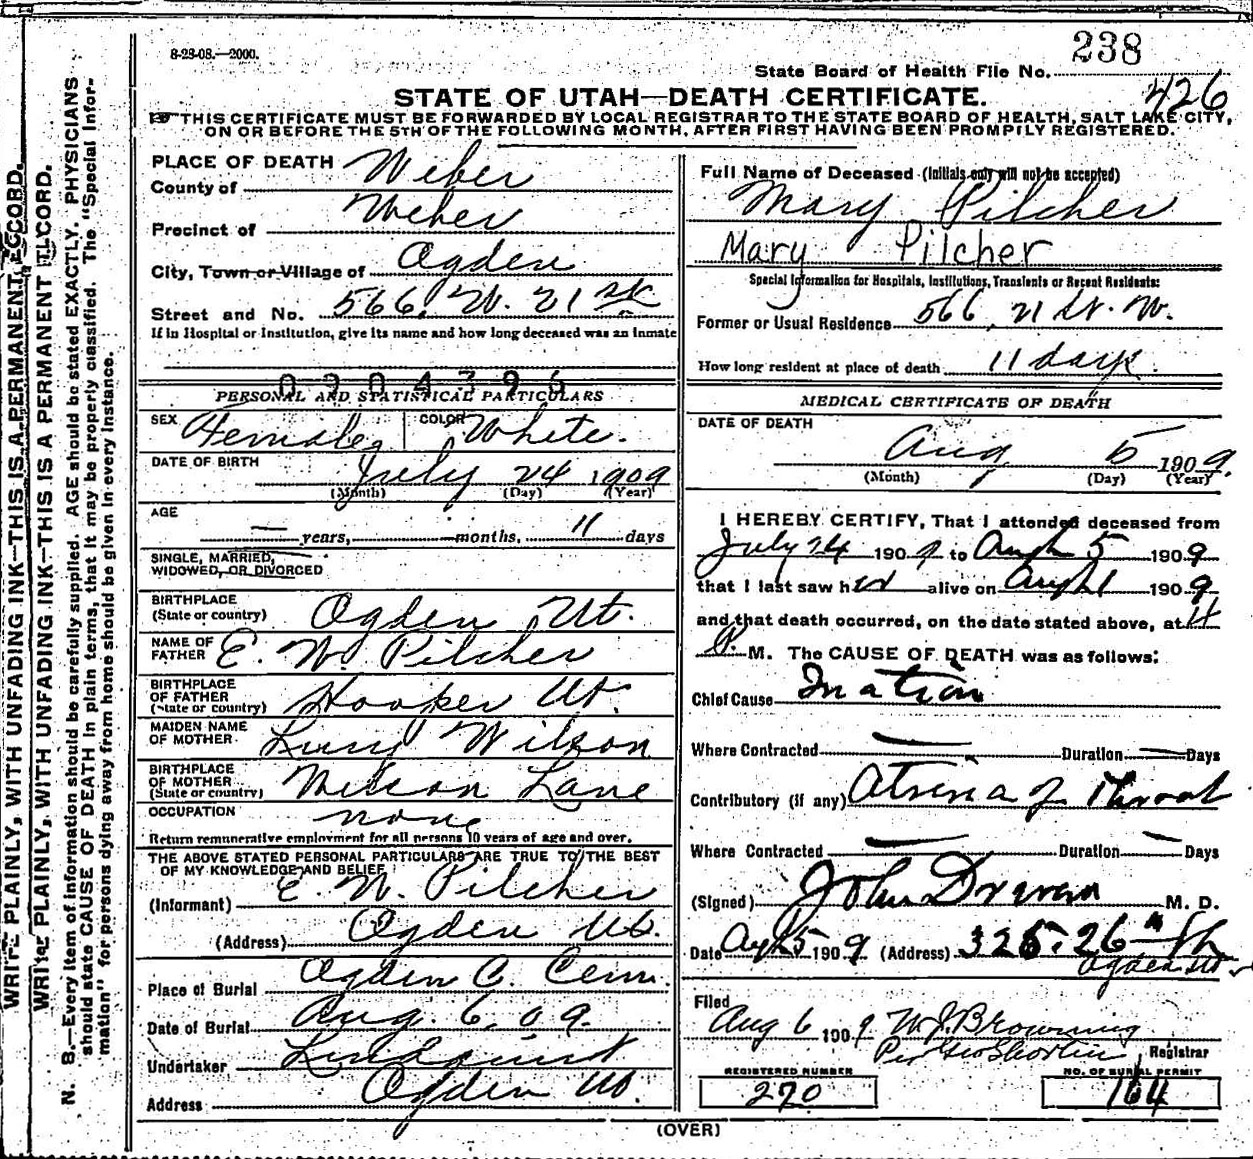 8-28-08.—2000.
238
State Board of Health File No.
426
STATE OF UTAH—DEATH CERTIFICATE.
THIS CERTIFICATE MUST BE FORWARDED BY LOCAL REGISTRAR TO THE STATE BOARD OF HEALTH, SALT LAKE CITY,
ON OR BEFORE THE 5TH OF THE FOLLOWING MONTH, AFTER FIRST HAVING BEEN PROMPILY REGISTERED.
PLACE OF DEATH
County of Weber
Precinct of Weber
City, Town or Village of Ogden
Street and No. 566. W. 21 st
If in Hospital or Institution, give its name and how long deceased was an inmate
0904396
PERSONAL AND STATISTICAL PARTICULARS
SEX Female COLOR White.
DATE OF BIRTH July 24 1909
(Month) (Day) (Year)
AGE — years, — months, 11 days
SINGLE, MARRIED,
WIDOWED, OR DIVORCED
BIRTHPLACE
(State or country) Ogden Ut.
NAME OF
FATHER E. W. Pilcher
BIRTHPLACE
OF FATHER
(State or country) Hooper Ut.
MAIDEN NAME
OF MOTHER Lucy Wilson
BIRTHPLACE
OF MOTHER
(State or country) Wilson Lane
OCCUPATION none
Return remunerative employment for all persons 10 years of age and over.
THE ABOVE STATED PERSONAL PARTICULARS ARE TRUE TO THE BEST
OF MY KNOWLEDGE AND BELIEF
(Informant) E. W. Pilcher
(Address) Ogden Ut.
Place of Burial Ogden C. Cem.
Date of Burial Aug. 6, 09.
Undertaker Lindquist
Address Ogden Ut.
Full Name of Deceased (Initials only will not be accepted)
Mary Pilcher
Mary Pilcher
Special Information for Hospitals, Institutions, Transients or Recent Residents:
Former or Usual Residence 566, 21 St. W.
How long resident at place of death 11 days.
MEDICAL CERTIFICATE OF DEATH
DATE OF DEATH
Aug 5 1909.
(Month) (Day) (Year)
I HEREBY CERTIFY, That I attended deceased from
July 24 1909 to Augh 5 1909
that I last saw her alive on Augh 1 1909
and that death occurred, on the date stated above, at 4
P. M. The CAUSE OF DEATH was as follows:
Chief Cause Ination
Where Contracted — Duration — Days
Contributory (if any) Atresia of Throat
Where Contracted — Duration — Days
(Signed) John Driver M. D.
Date Augh 5 1909 (Address) 325. 26th St
Ogden Ut
Filed
Aug 6 1909 W. J. Browning
Per Geo Shorten, Registrar
REGISTERED NUMBER
270
NO. OF BURIAL PERMIT
164
(OVER)
WRITE PLAINLY, WITH UNFADING INK—THIS IS A PERMANENT RECORD.
WRITE PLAINLY, WITH UNFADING INK—THIS IS A PERMANENT RECORD.
N. B.—Every item of information should be carefully supplied. AGE should be stated EXACTLY. PHYSICIANS
should state CAUSE OF DEATH in plain terms, that it may be properly classified. The "Special Infor-
mation" for persons dying away from home should be given in every instance.